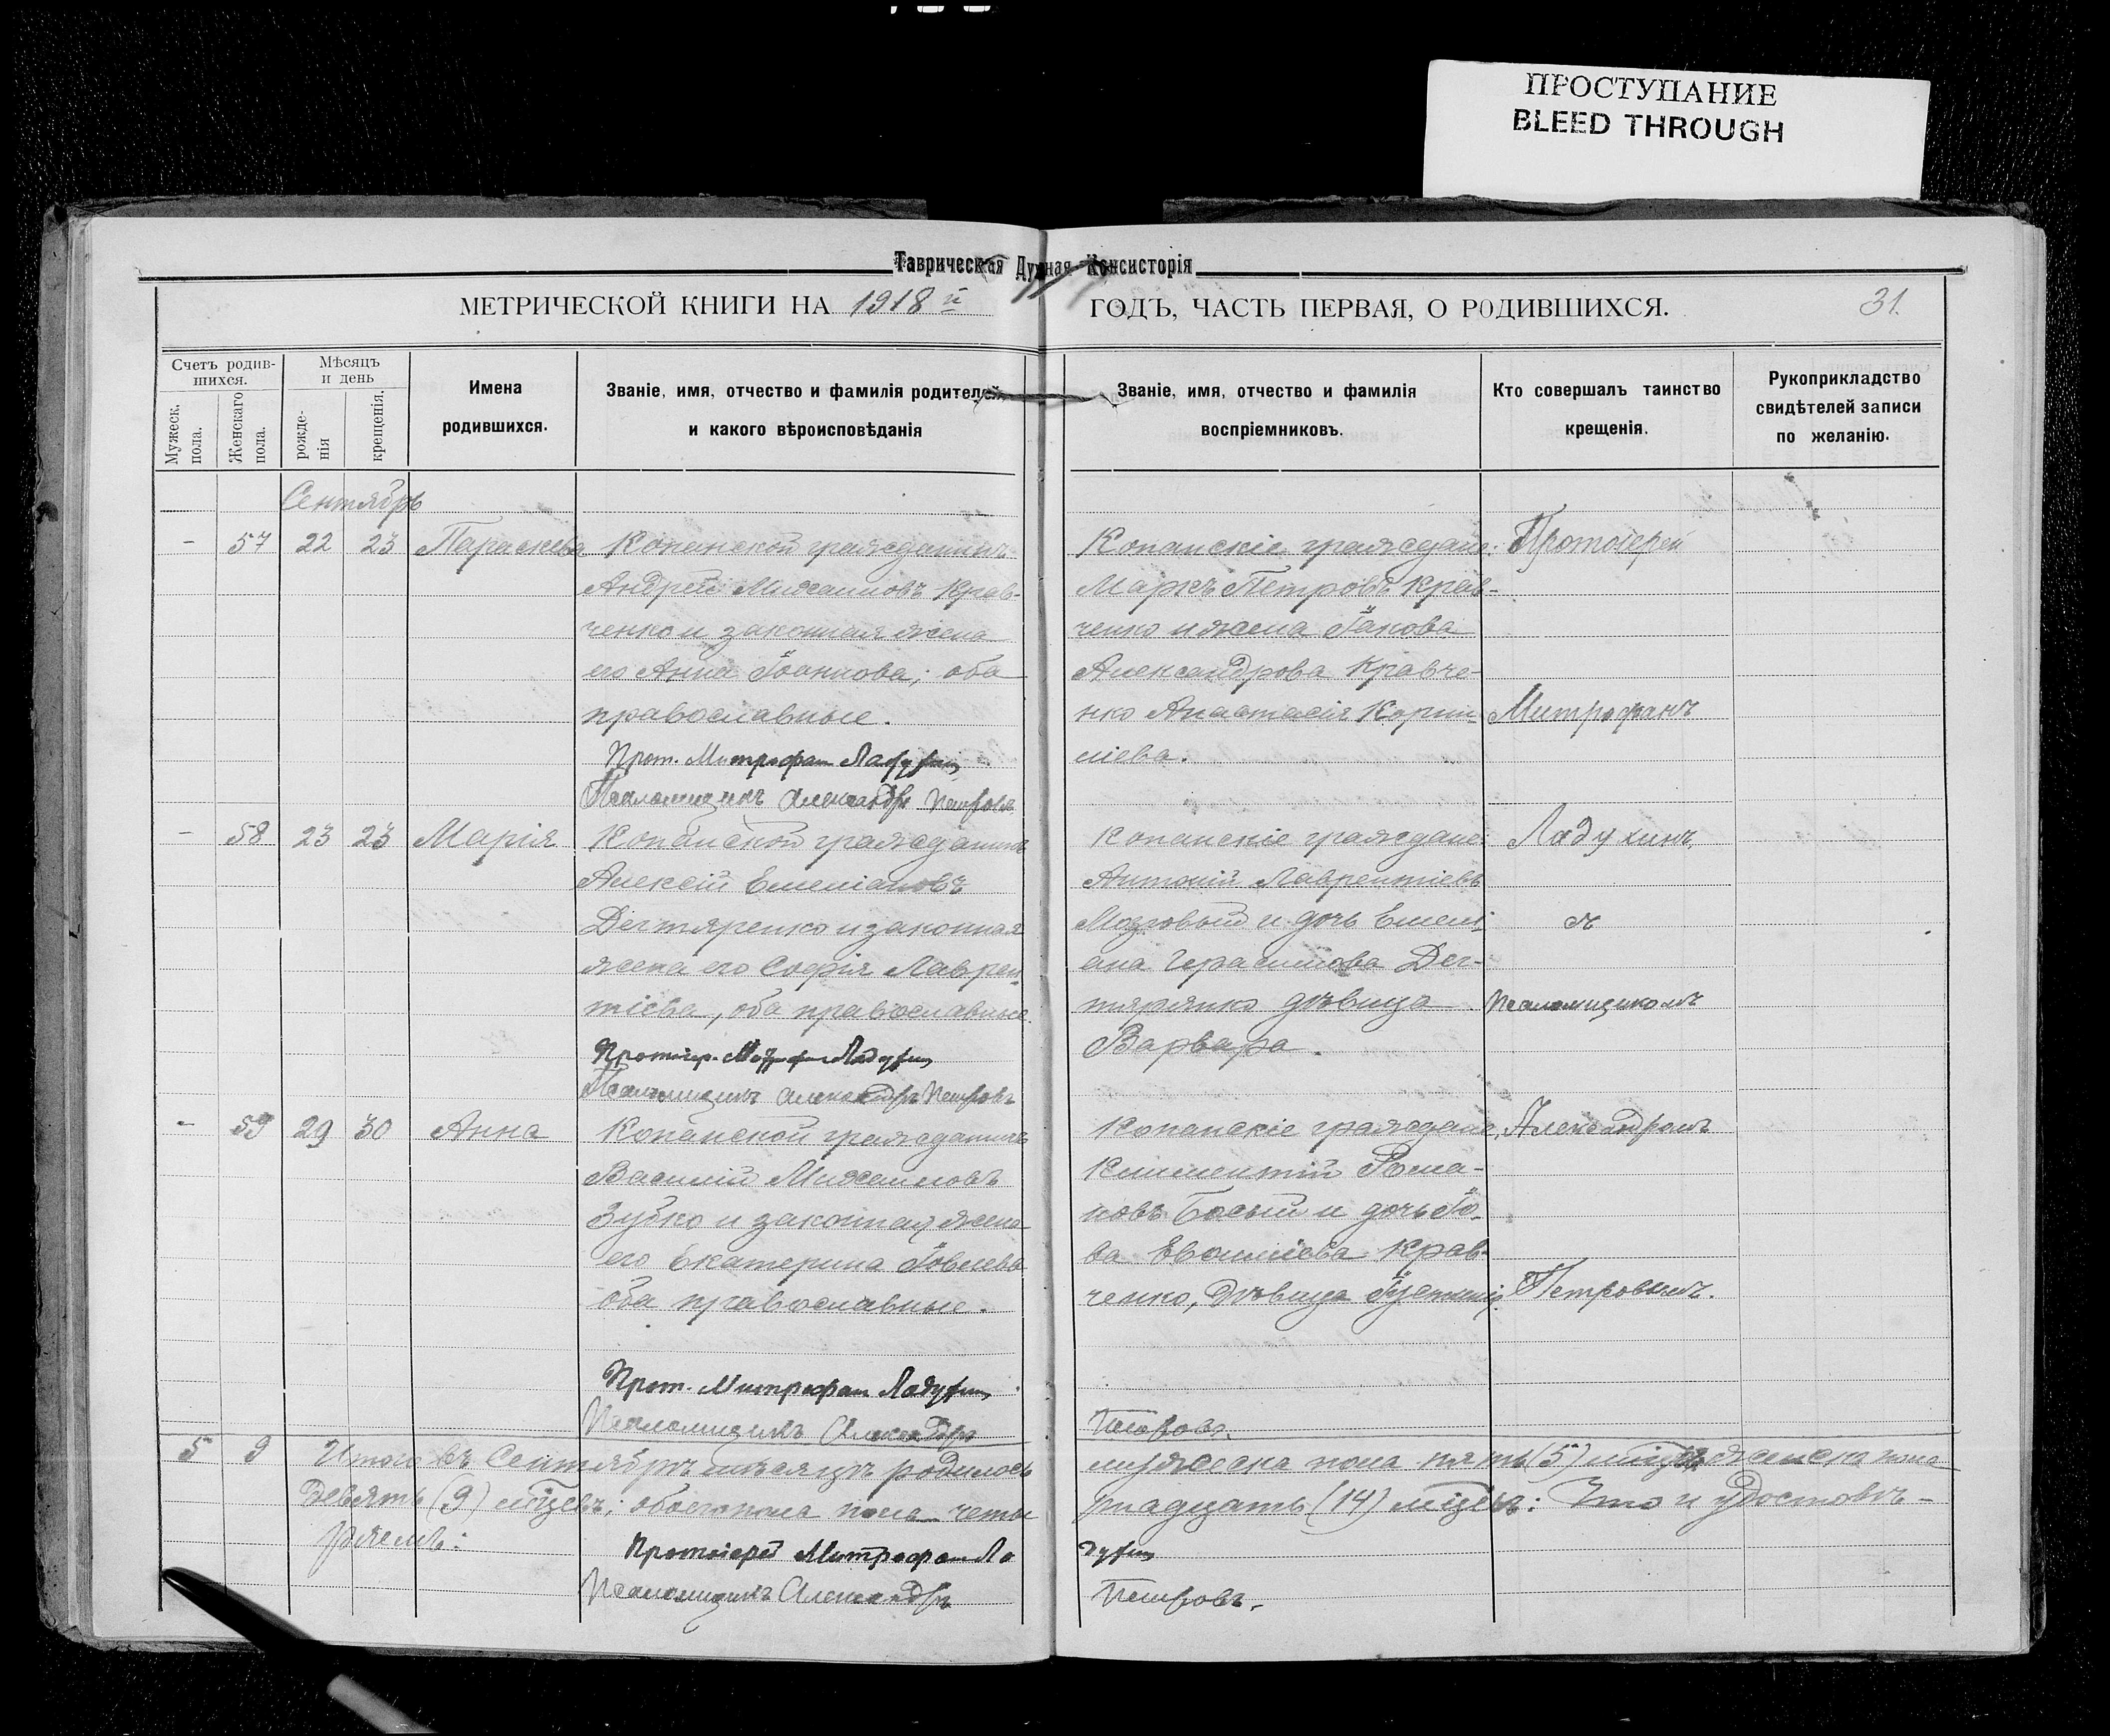 ПРОСТУПАНИЕ
BLEED THROUGH
Таврическая Духовная Консисторія
МЕТРИЧЕСКОЙ КНИГИ НА 1918 й
Счетъ родив-
шихся.
Мѣсяцъ
и день
Мужеск.
пола.
Женскаго
пола.
рожде-
нія
крещенія.
Имена
родившихся.
Званіе, имя, отчество и фамилія родителей,
и какого вѣроисповѣданія
Сентябрь
- 57 22 23 Параскева Копанской гражданинъ
Андрей Михаиловъ Крав-
ченко и законная жена
его Анна Іоаннова; оба
православные.
Прот. Митрофан Ладухин
Псаломщикъ Александръ Петровъ
- 58 23 23 Марія Копанской гражданинъ
Алексій Емеліановъ
Дегтяренко и законная
жена его Софія Лаврен
тіева, оба православные.
Протоіер. Митрофан Ладухин
Псаломщикъ Александръ Петровъ
- 59 29 30 Анна Копанской гражданинъ
Василій Михаиловъ
Зубко и законная жена
его Екатерина Іовлева
оба православные.
Прот. Митрофан Ладухин
Псаломщикъ Александръ
5 9 Итого въ Сентябрѣ мѣсяцѣ родилось
девять (9) обоего пола четы
ряемъ:
Протоіерей Митрофан Ла
Псаломщикъ Александръ
ГОДЪ, ЧАСТЬ ПЕРВАЯ, О РОДИВШИХСЯ. 31.
Званіе, имя, отчество и фамилія
воспріемниковъ.
Кто совершалъ таинство
крещенія.
Рукоприкладство
свидѣтелей записи
по желанію.
Копанскіе граждане: Протоіерей
Маркъ Петровъ Крав-
ченко и жена Іакова
Александрова Кравче-
нко Анастасія Корни- Митрофанъ
ліева.
Копанскіе граждане: Ладухинъ,
Антоній Лаврентіевъ
Мозговый и дочь Емелі- съ
ана Герасимова Дег-
тярянко дѣвица Псаломщикомъ
Варвара.
Копанскіе граждане, Александромъ
Климентій Рома-
новъ Босый и дочь Іо-
ва Крав-
ченко, дѣвица Петровымъ.
Петровъ.
мужеска пола пять (5) женска пола
рнадцать (14) Что и удостовѣ-
духин
Петровъ.